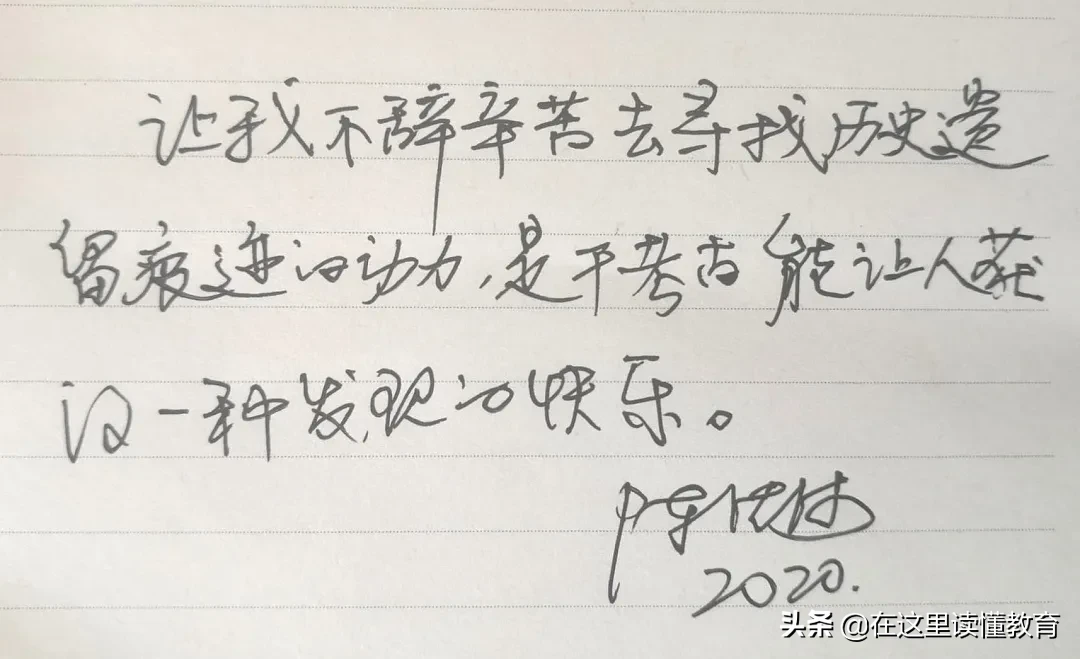 让我不辞辛苦去寻找历史遗
留痕迹的动力,是干考古能让人获
得一种发现的快乐。
2020.
头条 @在这里读懂教育